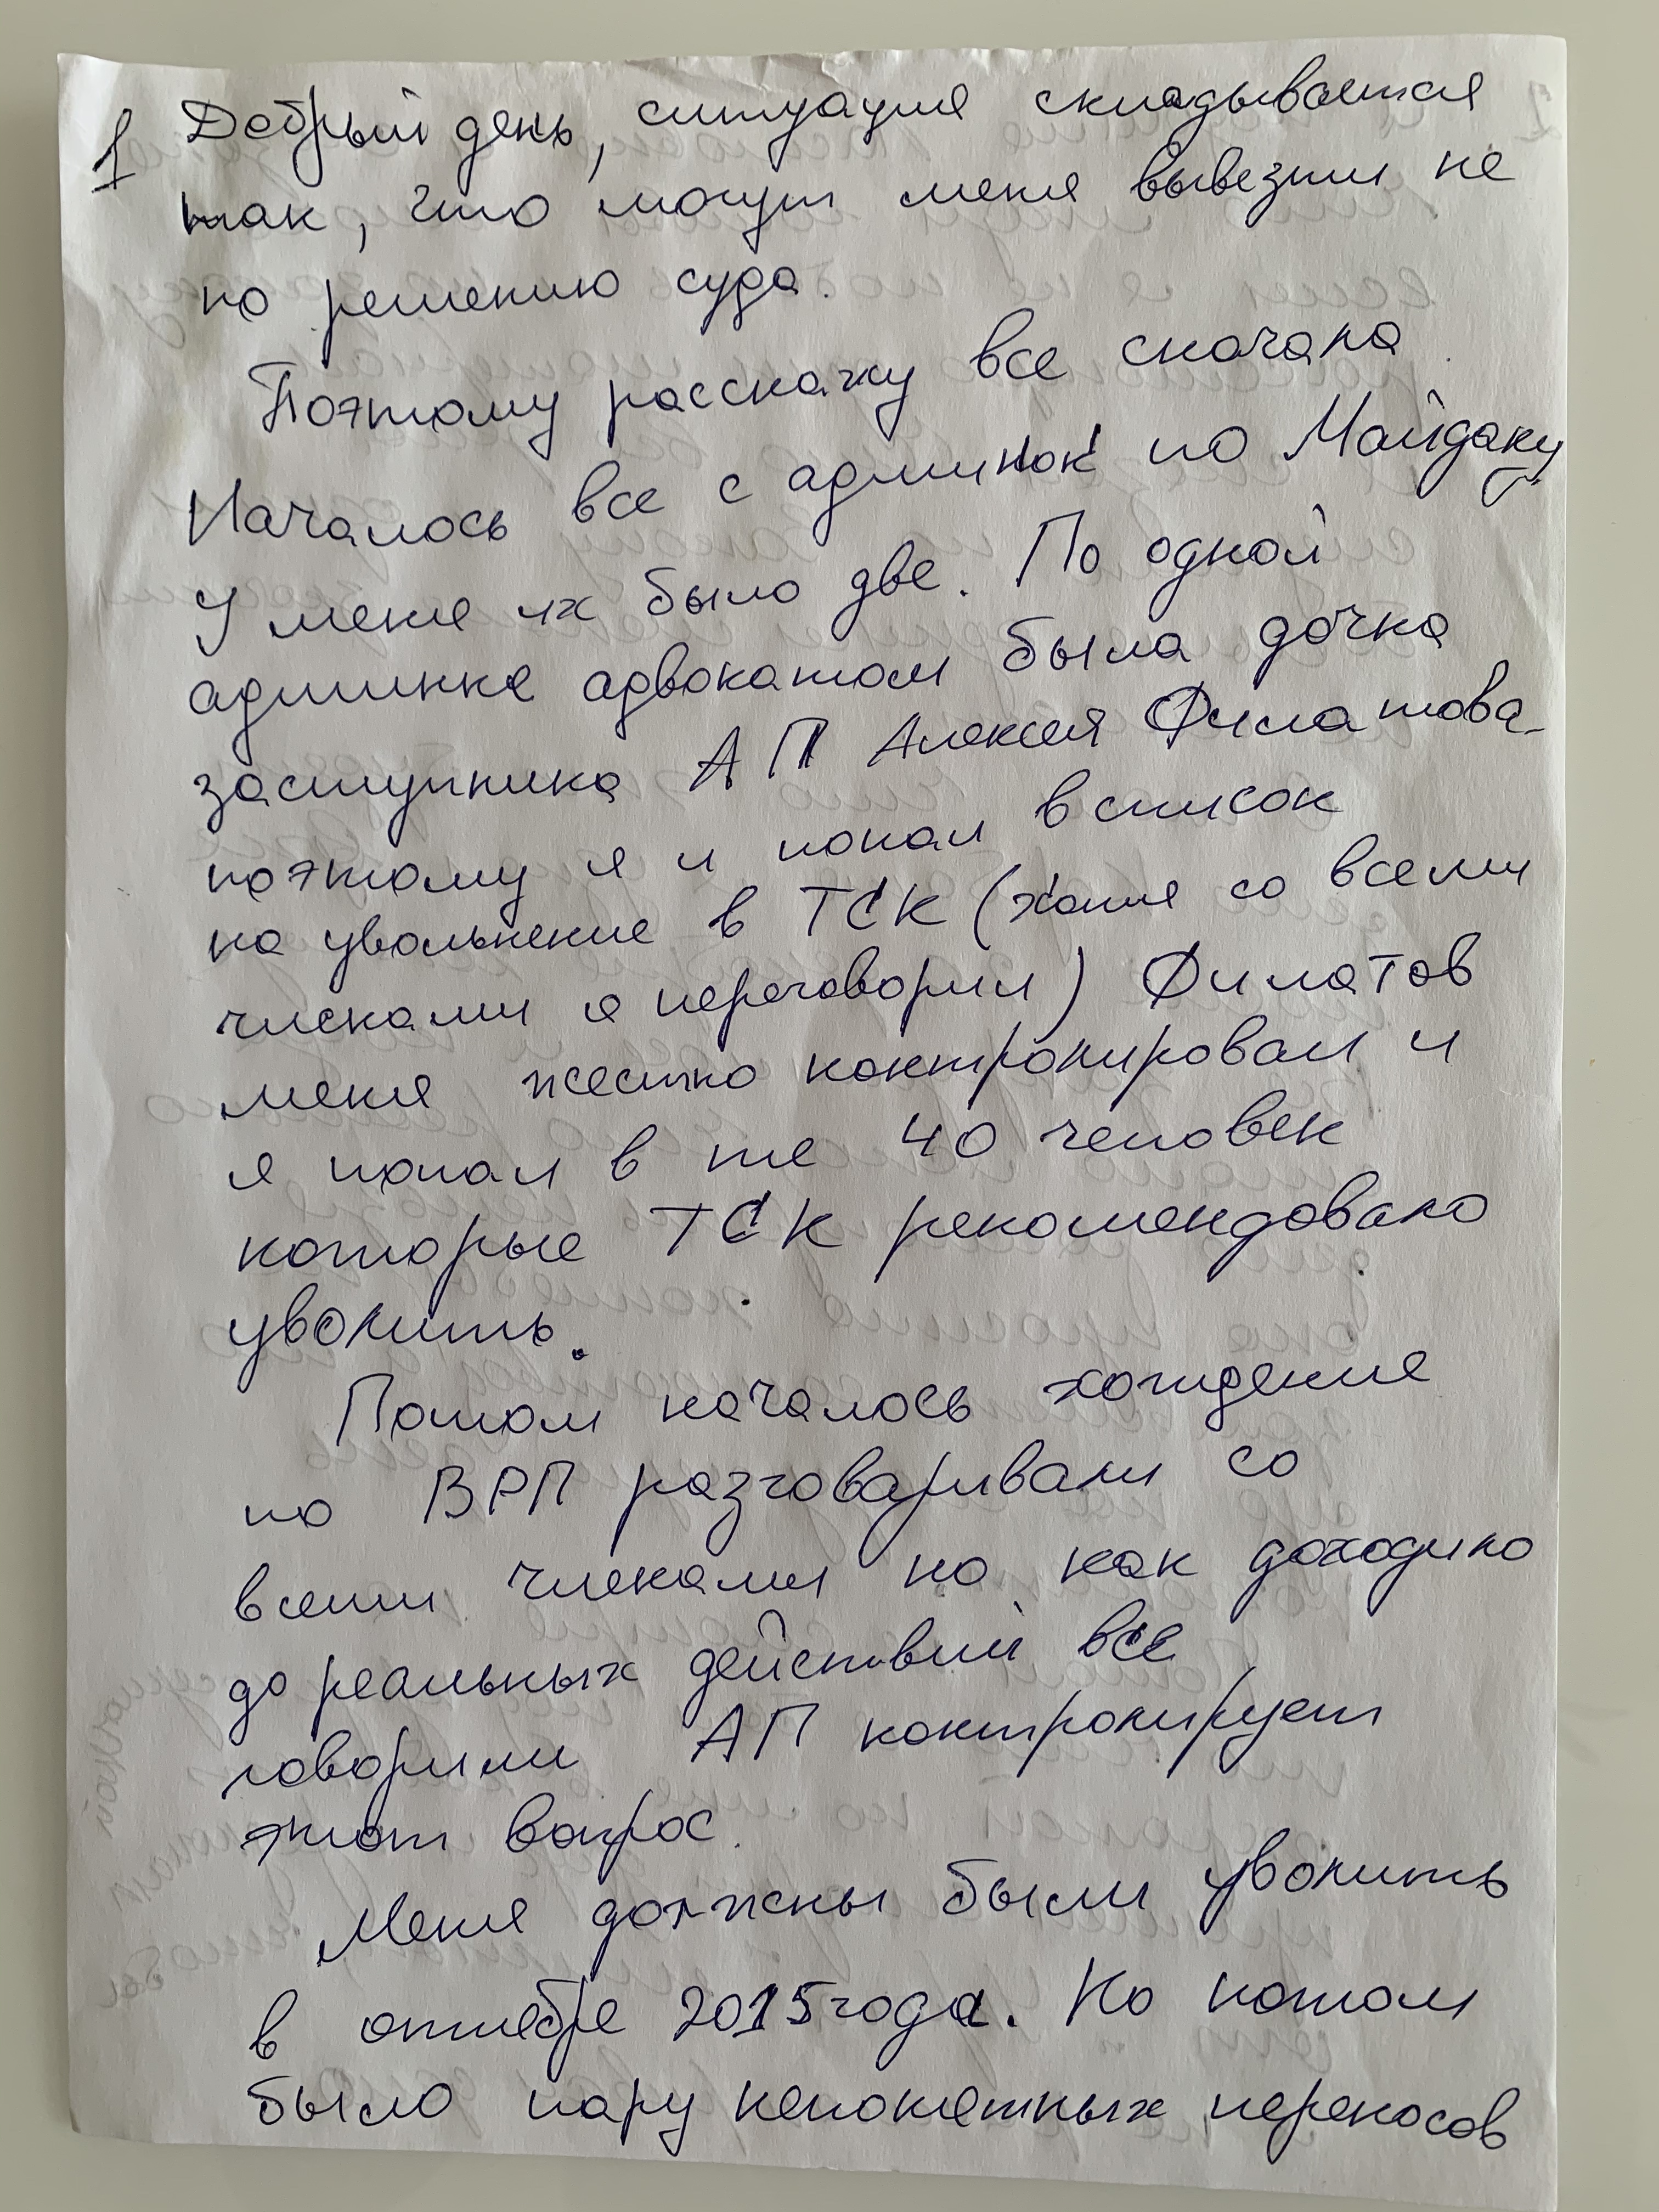 1 Добрый день, ситуация складывается
так, что могут меня вывезти не
по решению суда.
Поэтому расскажу все сначала.
Началось все с админок по Майдану
У меня их было две. По одной
админке адвокатом была дочка
заступника АП Алексея Филатова -
поэтому я и попал в список
на увольнение в ТСК (хотя со всеми
членами я переговорил) Филатов
меня жестко контролировал и
я попал в те 40 человек
которые ТСК рекомендовало
уволить.
Потом началось хождение
по ВРП разговаривали со
всеми членами но как доходило
до реальных действий все
говорили АП контролирует
этот вопрос.
Меня должны были уволить
в октябре 2015 года. Но потом
было пару непонятных переносов